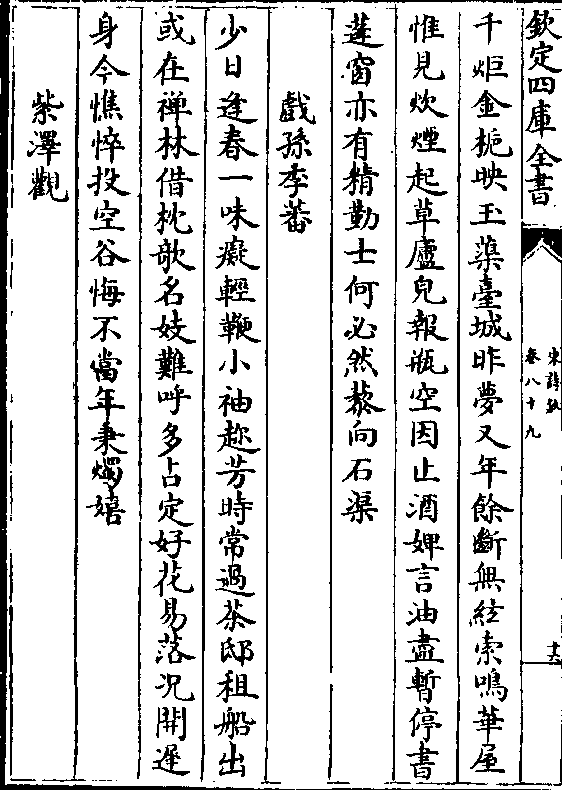 欽定四庫全書
宋詩鈔
卷八十九
十六
千炬金枙映玉蕖臺城昨夢又年餘斷無絃索鳴華屋
惟見炊煙起草廬兒報瓶空因止酒婢言油盡暫停書
蓬窗亦有精勤士何必然藜向石渠
戲孫季蕃
少日逢春一味癡輕鞭小袖趂芳時常過茶邸租船出
或在禪林借枕欹名妓難呼多占定好花易落况開遲
身今憔悴投空谷悔不當年秉燭嬉
紫澤觀